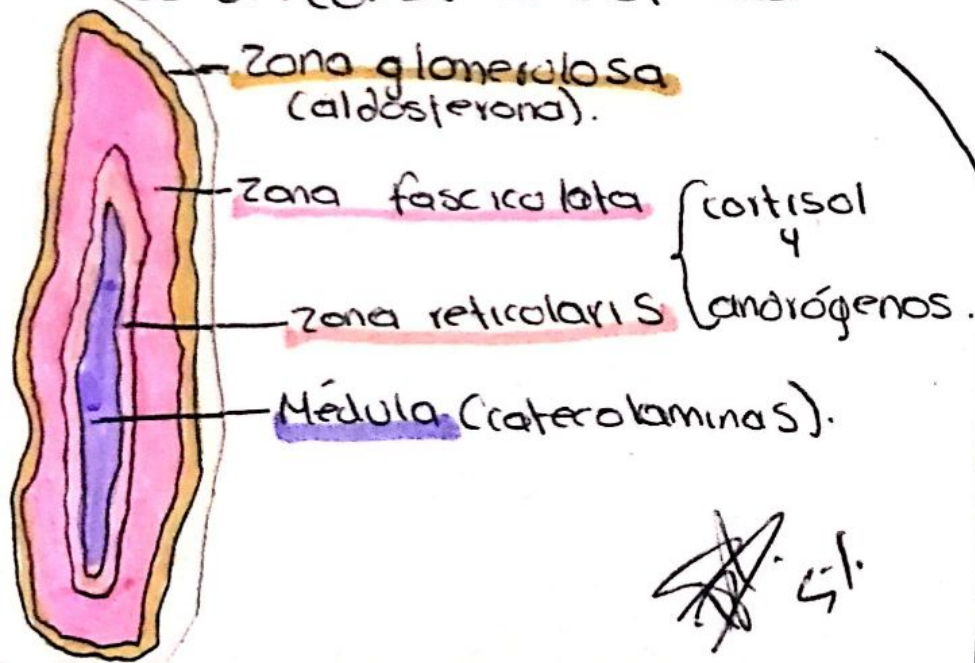 Zona glomerulosa
(aldosterona).
Zona fasciculata
cortisol
y
andrógenos.
zona reticularis
Médula (catecolaminas).